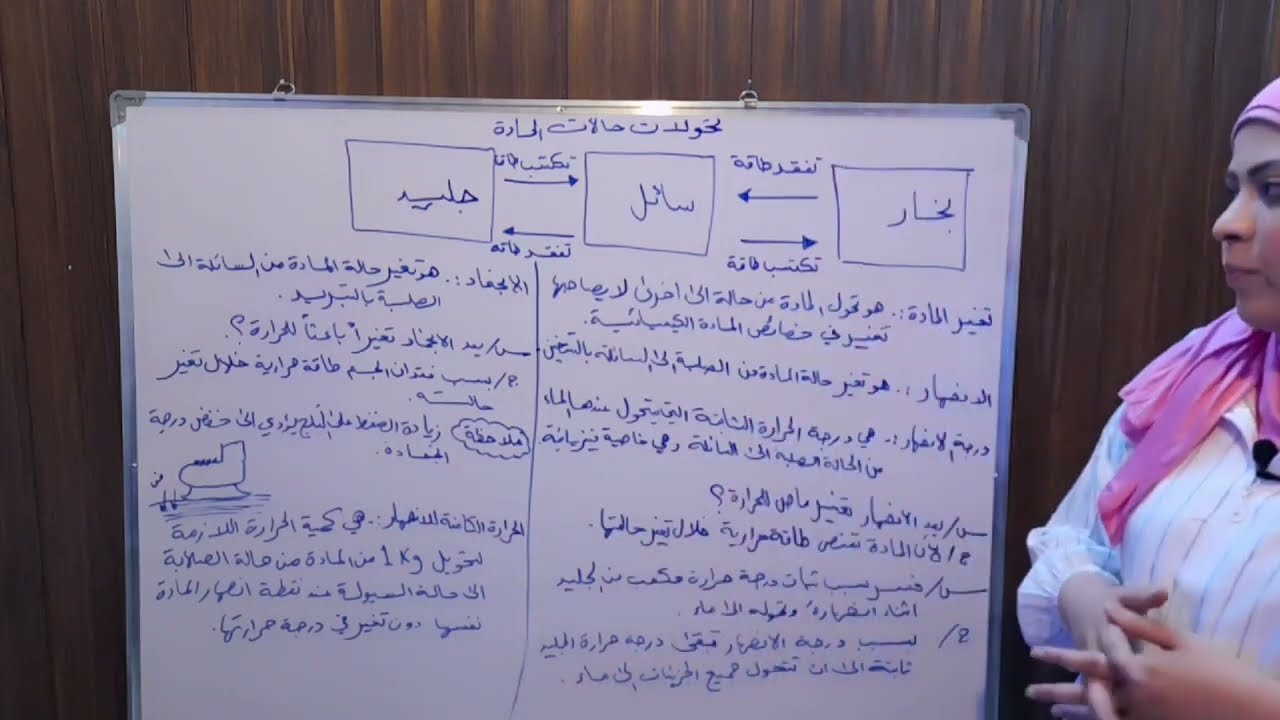 تحولات حالات المادة
بخار
تفقد طاقة
تكتسب طاقة
سائل
تكتسب طاقة
تفقد طاقة
جليد
تغير المادة :. هو تحول المادة من حالة الى اخرى لا يصاحبها
تغيير في خصائص المادة الكيميائية.
الانصهار :. هو تغير حالة المادة من الصلبة الى السائلة بالتسخين.
درجة الانصهار :. هي درجة الحرارة الثابتة التي يتحول عندها الماء
من الحالة الصلبة الى السائلة وهي خاصية فيزيائية
س/ يعد الانصهار تغير ماص للحرارة؟
ج/ لأن المادة تمتص طاقة حرارية خلال تغير حالتها.
س/ فسر سبب ثبات درجة حرارة مكعب من الجليد
اثناء انصهاره وتحوله الى ماء.
ج/ بسبب درجة الانصهار تبقى درجة حرارة الجليد
ثابتة الى ان تتحول جميع الجزيئات الى ماء.
الانجماد :. هو تغير حالة المادة من السائلة الى
الصلبة بالتبريد.
س/ يعد الانجماد تغيراً باعثاً للحرارة؟
ج/ بسبب فقدان الجسم طاقة حرارية خلال تغير
حالته.
ملاحظة زيادة الضغط على الثلج يؤدي الى خفض درجة
انجماده.
الحرارة الكامنة للانصهار :. هي كمية الحرارة اللازمة
لتحويل 1Kg من المادة من حالة الصلابة
الى حالة السيولة عند نقطة انصهار المادة
نفسها دون تغير في درجة حرارتها.